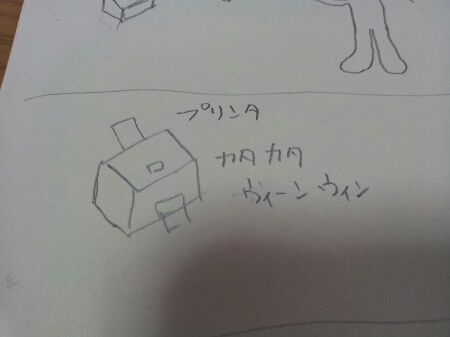 プリンタ
カタ カタ
ウィーン ウィン